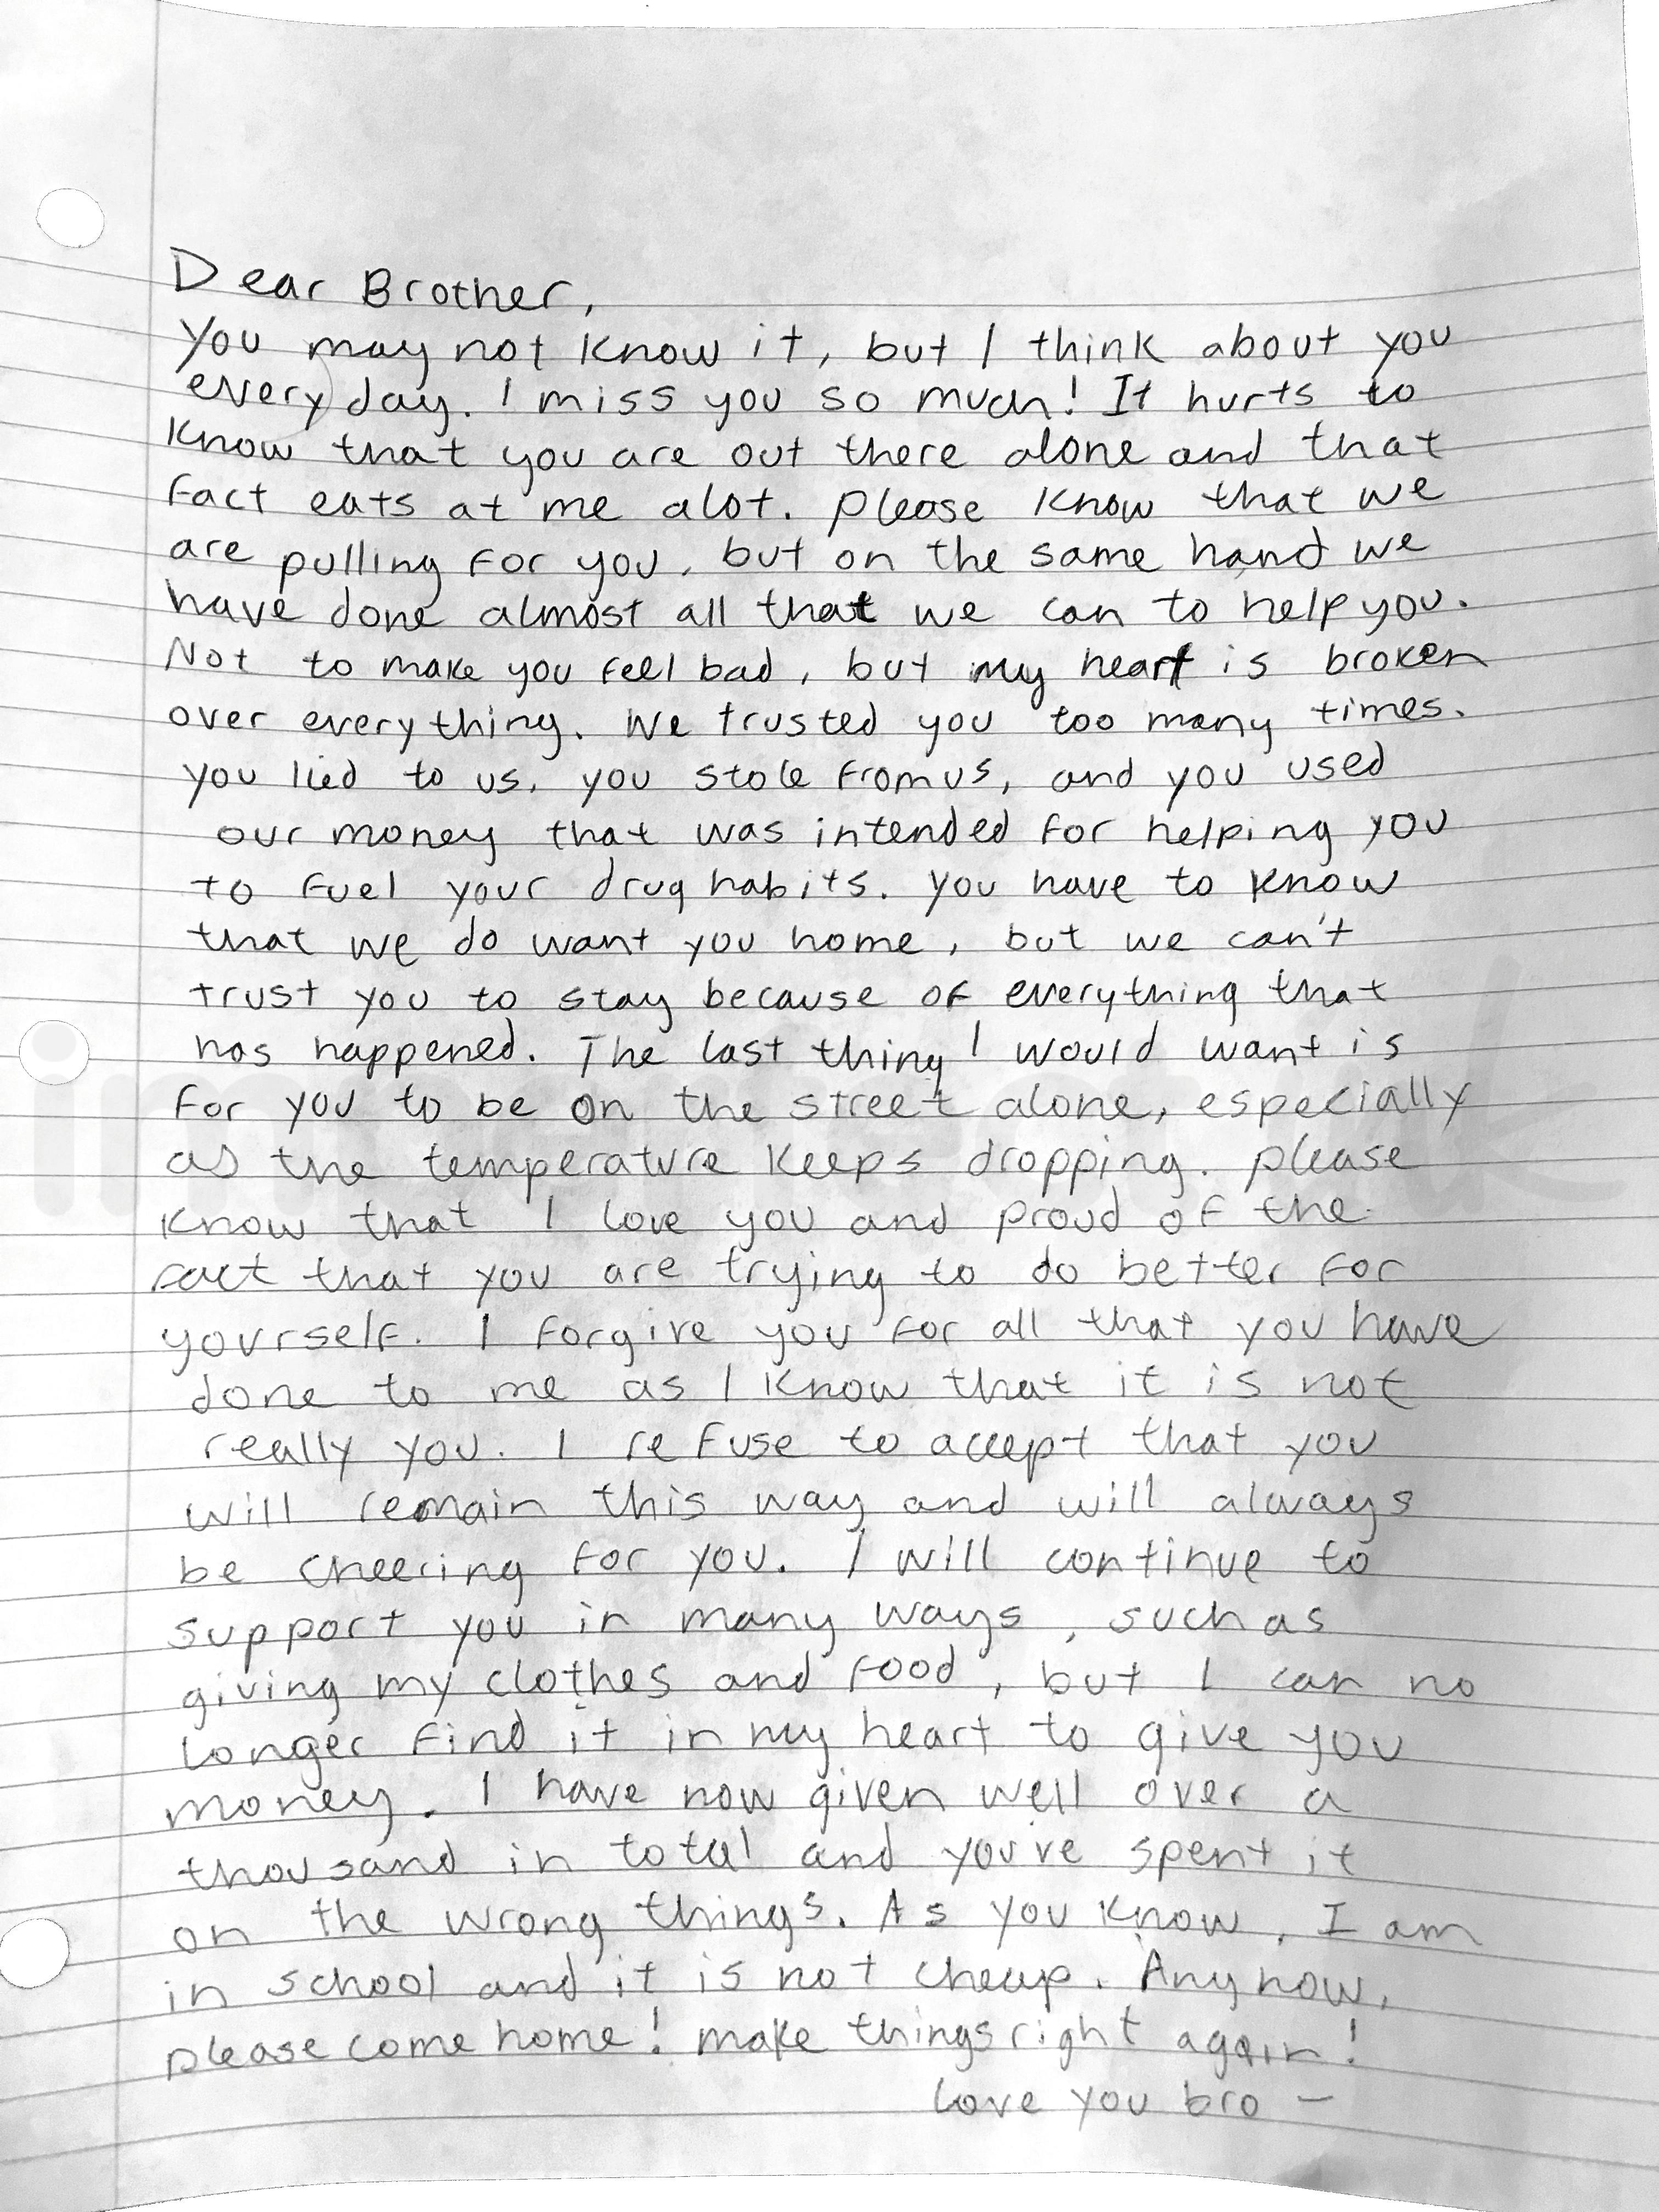 Dear Brother,
You may not know it, but I think about you
every day. I miss you so much! It hurts to
know that you are out there alone and that
fact eats at me alot. Please know that we
are pulling for you, but on the same hand we
have done almost all that we can to help you.
Not to make you feel bad, but my heart is broken
over everything. We trusted you too many times.
You lied to us, you stole from us, and you used
our money that was intended for helping you
to fuel your drug habits. You have to know
that we do want you home, but we can't
trust you to stay because of everything that
has happened. The last thing I would want is
for you to be on the street alone, especially
as the temperature keeps dropping. Please
know that I love you and proud of the
fact that you are trying to do better for
yourself. I forgive you for all that you have
done to me as I know that it is not
really you. I refuse to accept that you
will remain this way and will always
be cheering for you. I will continue to
support you in many ways, such as
giving my clothes and food, but I can no
longer find it in my heart to give you
money. I have now given well over a
thousand in total and you've spent it
on the wrong things. As you know, I am
in school and it is not cheap. Anyhow,
please come home! make things right again!
Love you bro -